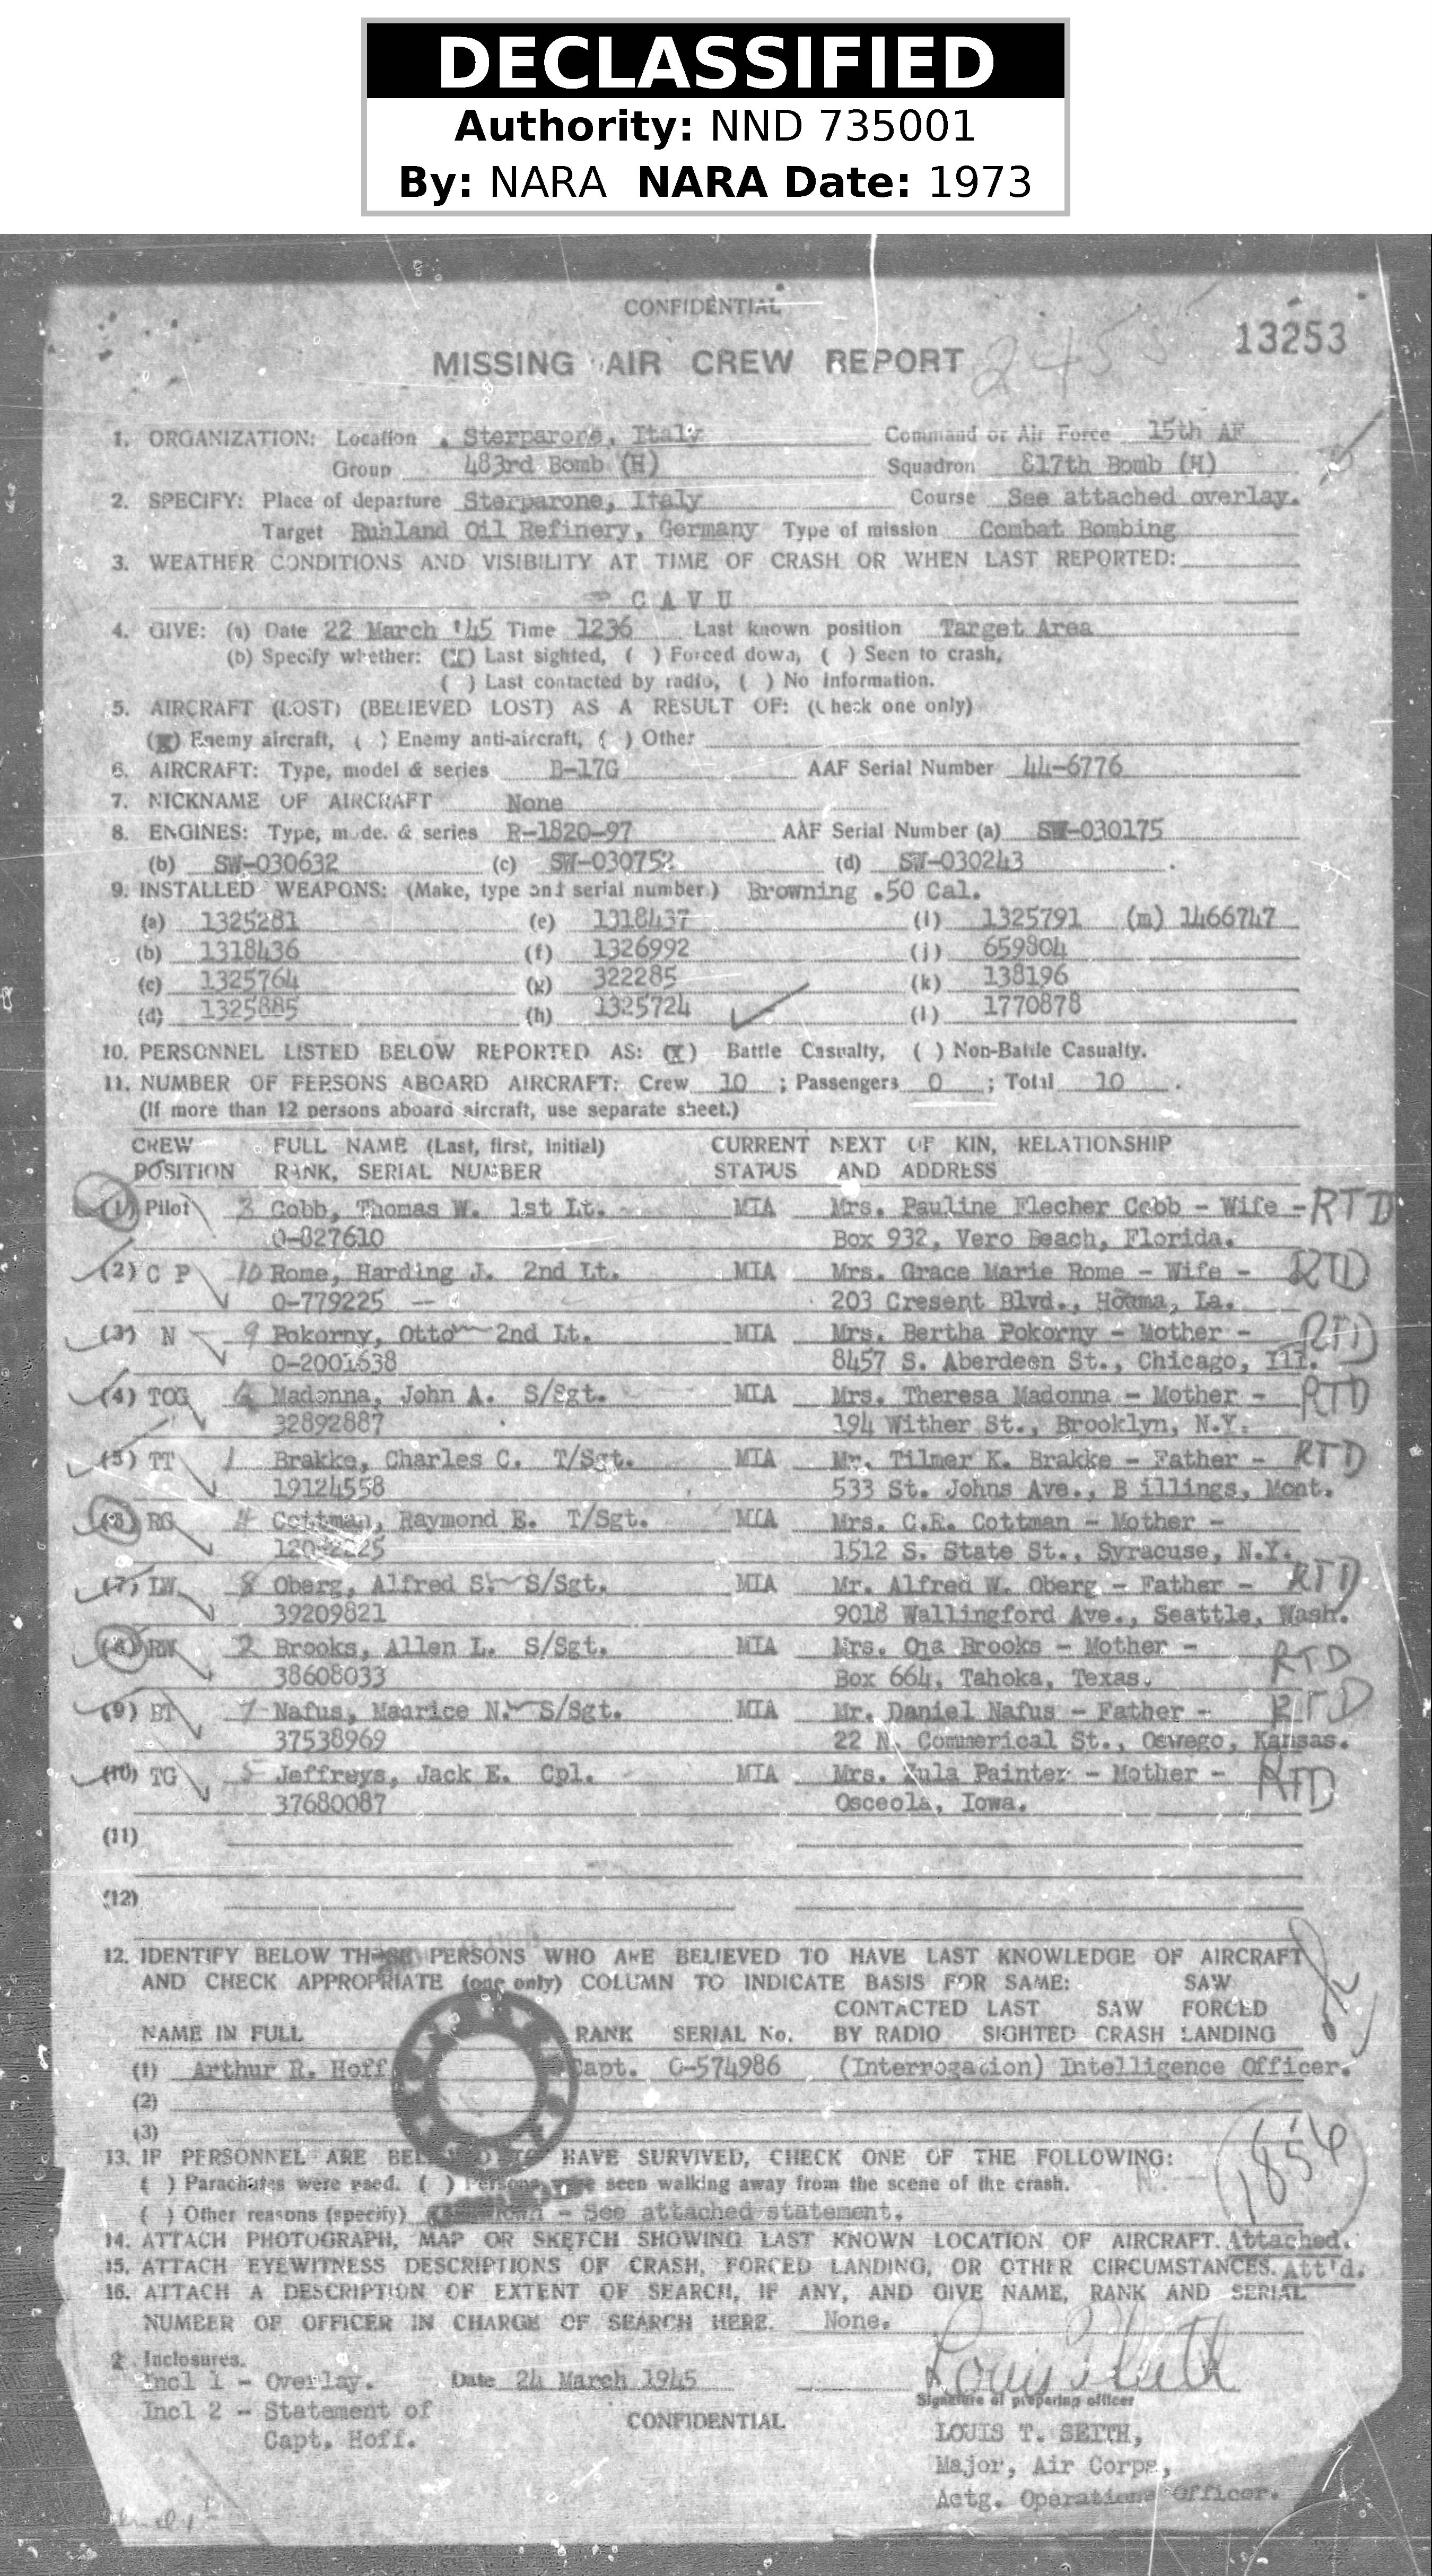 DECLASSIFIED
Authority: NND 735001
By: NARA NARA Date: 1973
CONFIDENTIAL
13253
MISSING AIR CREW REPORT
1. ORGANIZATION: Location Sterparone, Italy Command or Air Force 15th AF
Group 483rd Bomb (H) Squadron 817th Bomb (H)
2. SPECIFY: Place of departure Sterparone, Italy Course See attached overlay.
Target Ruhland Oil Refinery, Germany Type of mission Combat Bombing
3. WEATHER CONDITIONS AND VISIBILITY AT TIME OF CRASH OR WHEN LAST REPORTED:
C A V U
4. GIVE: (a) Date 22 March '45 Time 1236 Last known position Target Area
(b) Specify whether: (X) Last sighted, ( ) Forced down, ( ) Seen to crash,
( ) Last contacted by radio, ( ) No information.
5. AIRCRAFT (LOST) (BELIEVED LOST) AS A RESULT OF: (Check one only)
(X) Enemy aircraft, ( ) Enemy anti-aircraft, ( ) Other
6. AIRCRAFT: Type, model & series B-17G AAF Serial Number 44-6776
7. NICKNAME OF AIRCRAFT None
8. ENGINES: Type, model & series R-1820-97 AAF Serial Number (a) SW-030175
(b) SW-030632 (c) SW-030752 (d) SW-030243 .
9. INSTALLED WEAPONS: (Make, type and serial number) Browning .50 Cal.
(a) 1325281 (e) 1318437 (i) 1325791 (m) 1466747
(b) 1318436 (f) 1326992 (j) 659804
(c) 1325764 (g) 322285 (k) 138196
(d) 1325885 (h) 1325724 (l) 1770878
10. PERSONNEL LISTED BELOW REPORTED AS: (X) Battle Casualty, ( ) Non-Battle Casualty.
11. NUMBER OF PERSONS ABOARD AIRCRAFT: Crew 10 ; Passengers 0 ; Total 10 .
(If more than 12 persons aboard aircraft, use separate sheet.)
CREW FULL NAME (Last, first, initial) CURRENT NEXT OF KIN, RELATIONSHIP
POSITION RANK, SERIAL NUMBER STATUS AND ADDRESS
(1) Pilot 3 Cobb, Thomas W. 1st Lt. MIA Mrs. Pauline Flecher Cobb - Wife - RTD
O-827610 Box 932, Vero Beach, Florida.
(2) C P 10 Rome, Harding J. 2nd Lt. MIA Mrs. Grace Marie Rome - Wife - RTD
O-779225 203 Cresent Blvd., Houma, La.
(3) N 9 Pokorny, Otto 2nd Lt. MIA Mrs. Bertha Pokorny - Mother - RTD
O-2001638 8457 S. Aberdeen St., Chicago, Ill.
(4) TOG Madonna, John A. S/Sgt. MIA Mrs. Theresa Madonna - Mother - RTD
32892887 194 Wither St., Brooklyn, N.Y.
(5) TT 1 Brakke, Charles C. T/Sgt. MIA Mr. Tilmer K. Brakke - Father - RTD
19124558 533 St. Johns Ave., B illings, Mont.
(6) RG 4 Cottman, Raymond E. T/Sgt. MIA Mrs. C.R. Cottman - Mother -
1512 S. State St., Syracuse, N.Y.
(7) LW 8 Oberg, Alfred S. S/Sgt. MIA Mr. Alfred W. Oberg - Father - RTD
39209821 9018 Wallingford Ave., Seattle, Wash.
(8) RW 2 Brooks, Allen L. S/Sgt. MIA Mrs. Oja Brooks - Mother - RTD
38608033 Box 664, Tahoka, Texas.
(9) BT 7 Nafus, Maurice N. S/Sgt. MIA Mr. Daniel Nafus - Father - RTD
37538969 22 N. Commerical St., Oswego, Kansas.
(10) TG 5 Jeffreys, Jack E. Cpl. MIA Mrs. Zula Painter - Mother - RTD
37680087 Osceola, Iowa.
(11)
(12)
12. IDENTIFY BELOW THOSE PERSONS WHO ARE BELIEVED TO HAVE LAST KNOWLEDGE OF AIRCRAFT
AND CHECK APPROPRIATE (one only) COLUMN TO INDICATE BASIS FOR SAME: SAW
CONTACTED LAST SAW FORCED
NAME IN FULL RANK SERIAL No. BY RADIO SIGHTED CRASH LANDING
(1) Arthur R. Hoff Capt. O-574986 (Interrogation) Intelligence Officer.
(2)
(3)
13. IF PERSONNEL ARE BELIEVED TO HAVE SURVIVED, CHECK ONE OF THE FOLLOWING:
( ) Parachutes were used. ( ) Persons were seen walking away from the scene of the crash.
( ) Other reasons (specify) - See attached statement.
1856
14. ATTACH PHOTOGRAPH, MAP OR SKETCH SHOWING LAST KNOWN LOCATION OF AIRCRAFT. Attached.
15. ATTACH EYEWITNESS DESCRIPTIONS OF CRASH, FORCED LANDING, OR OTHER CIRCUMSTANCES. Att'd.
16. ATTACH A DESCRIPTION OF EXTENT OF SEARCH, IF ANY, AND GIVE NAME, RANK AND SERIAL
NUMBER OF OFFICER IN CHARGE OF SEARCH HERE. None.
2 Inclosures.
Incl 1 - Overlay. Date 24 March 1945 Louis T Seith
Signature of preparing officer
Incl 2 - Statement of CONFIDENTIAL LOUIS T. SEITH,
Capt. Hoff. Major, Air Corps,
Actg. Operations Officer.